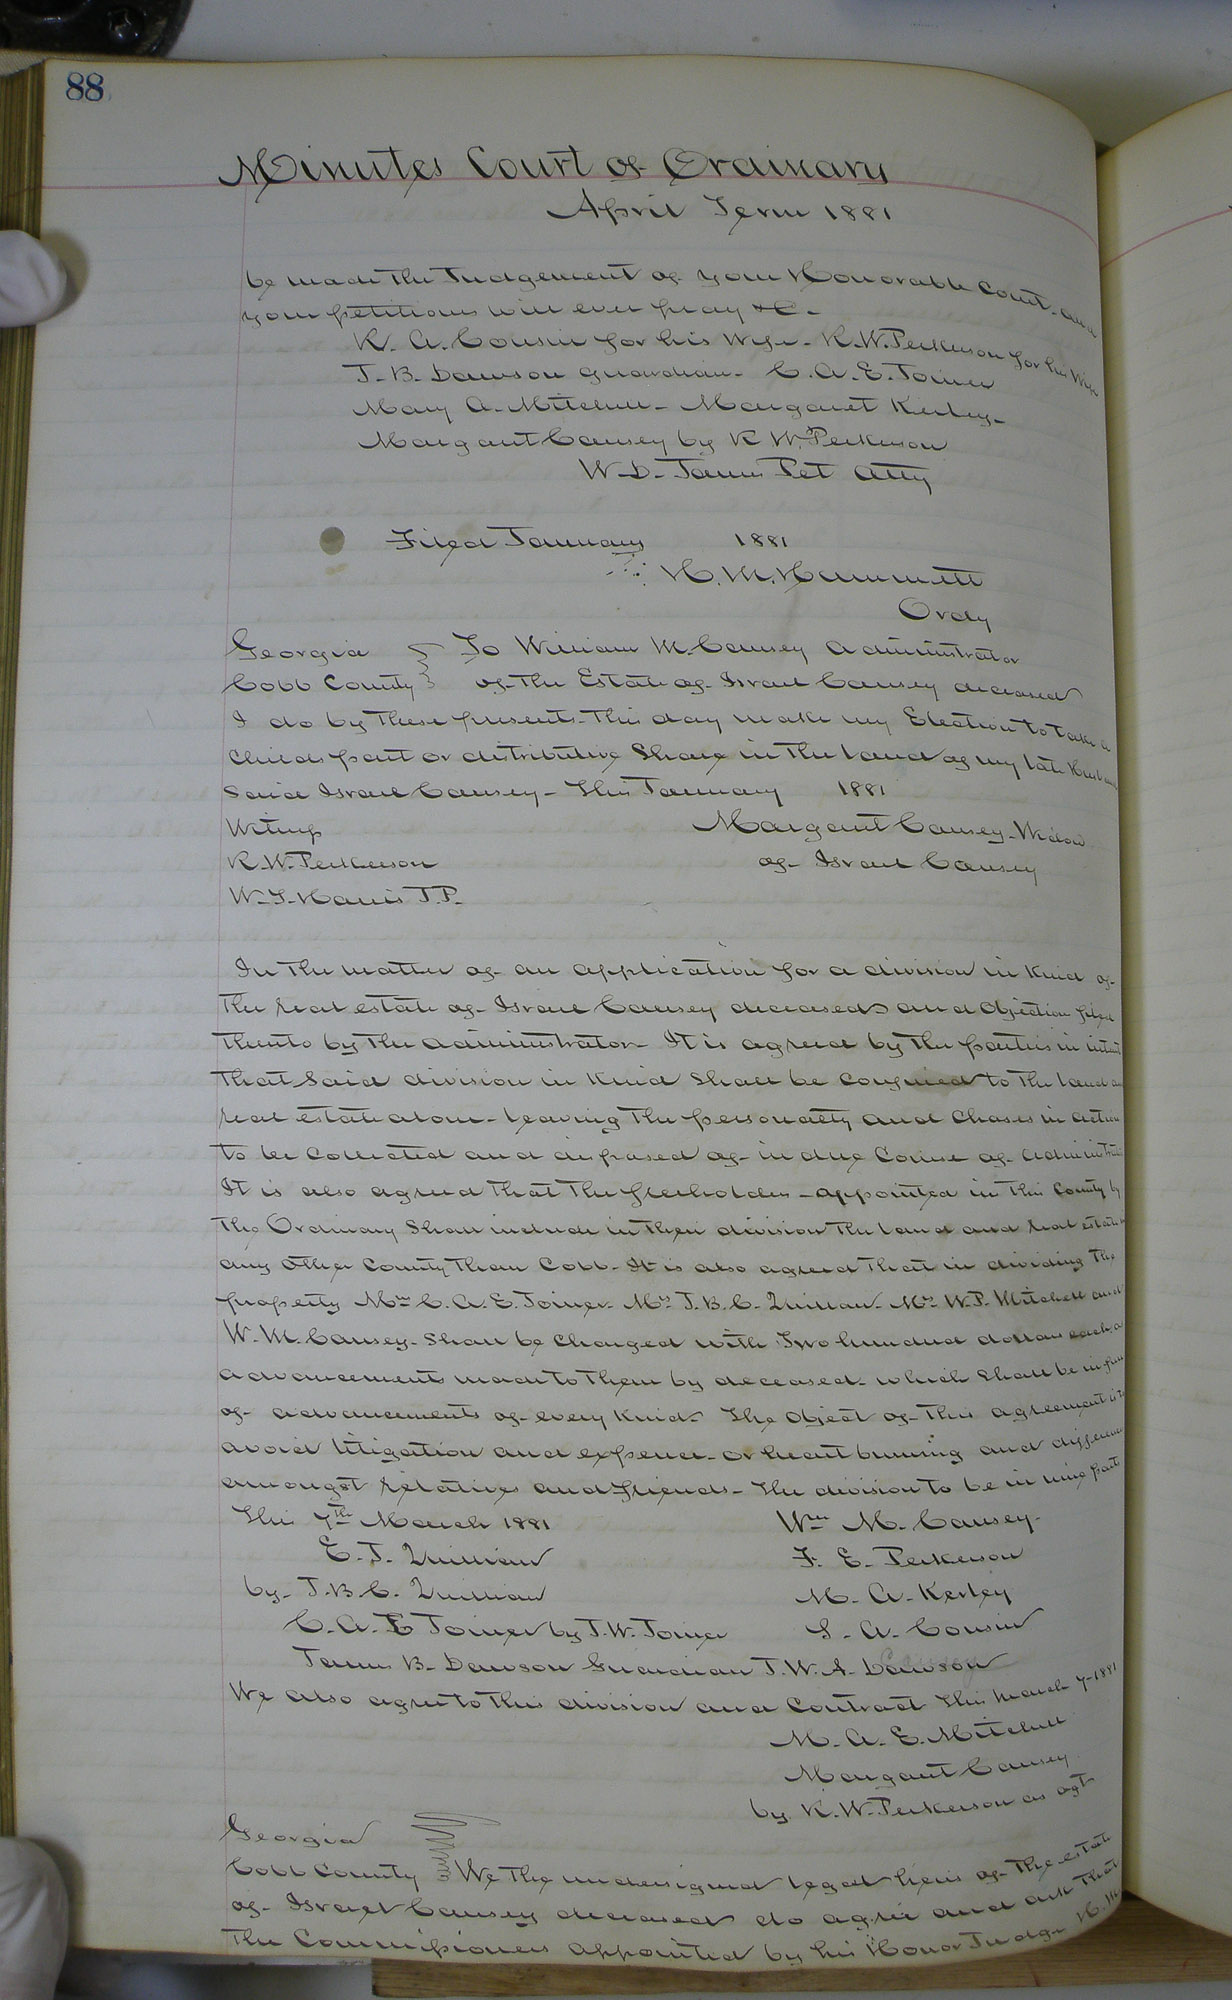 88
Minutes Court of Ordinary
April Term 1881
be made the Judgement of your Honorable Court and
your petitions will ever pray &C.
R. A. Cousin for his Wife - R. W. Perkerson for his Wife
J. B. Dawson Guardian - C. A. E. Joiner
Mary A. Mitchell - Margaret Kerley -
Margaret Causey by R W. Perkerson
W. D. Pet Atty
Filed January 1881
H. M. Hammett
Ordy
Georgia To William M. Causey Administrator
Cobb County of the Estate of Israel Causey deceased
I do by These presents this day make my Election to take a
Childs part or distributive Share in the land of my late Husband
Said Israel Causey - This January 1881
Witness Margaret Causey - Widow
R. W. Perkerson of Israel Causey
W. J. Harris J. P.
In the matter of an application for a division in Kind of
the real estate of Israel Causey deceased and Objection filed
thereto by the administrator - It is agreed by the parties in interest
that Said division in Kind Shall be confined to the land and
real estate alone - leaving the personalty and Choses in action
to be Collected and disposed of in due Course of administration
It is also agreed that the freeholders - appointed in this County by
the Ordinary Shall include in their division the land and real estate in
any other County than Cobb - It is also agreed that in dividing the
property Mrs C. A. E. Joiner - Mrs J. B. C. Quillian - Mrs W. P. Mitchell and
W. M. Causey - Shall be Charged with Two hundred dollars each as
advancements made to them by deceased - which Shall be in full
of advancements of every kind - The Object of this agreement is to
avoid litigation and expence - or heart burning and differences
amongst relatives and friends - The division to be in nine parts
This 7th March 1881 Wm M. Causey -
E. J. Quillian F. E. Perkerson
by - J. B. C. Quillian M. A. Kerley
C. A. E Joiner by J. W. Joiner S. A. Cousin
James B. Dawson Guardian J. W. A. Dawson
We also agree to this division and Contract This March 7 - 1881
M. A. E. Mitchell
Margaret Causey
by R. W. Perkerson as agt
Georgia
Cobb County We the undersigned legal heirs of the estate
of Israel Causey deceased do agree and ask that
the Commissioners appointed by his Honor Judge H. M.